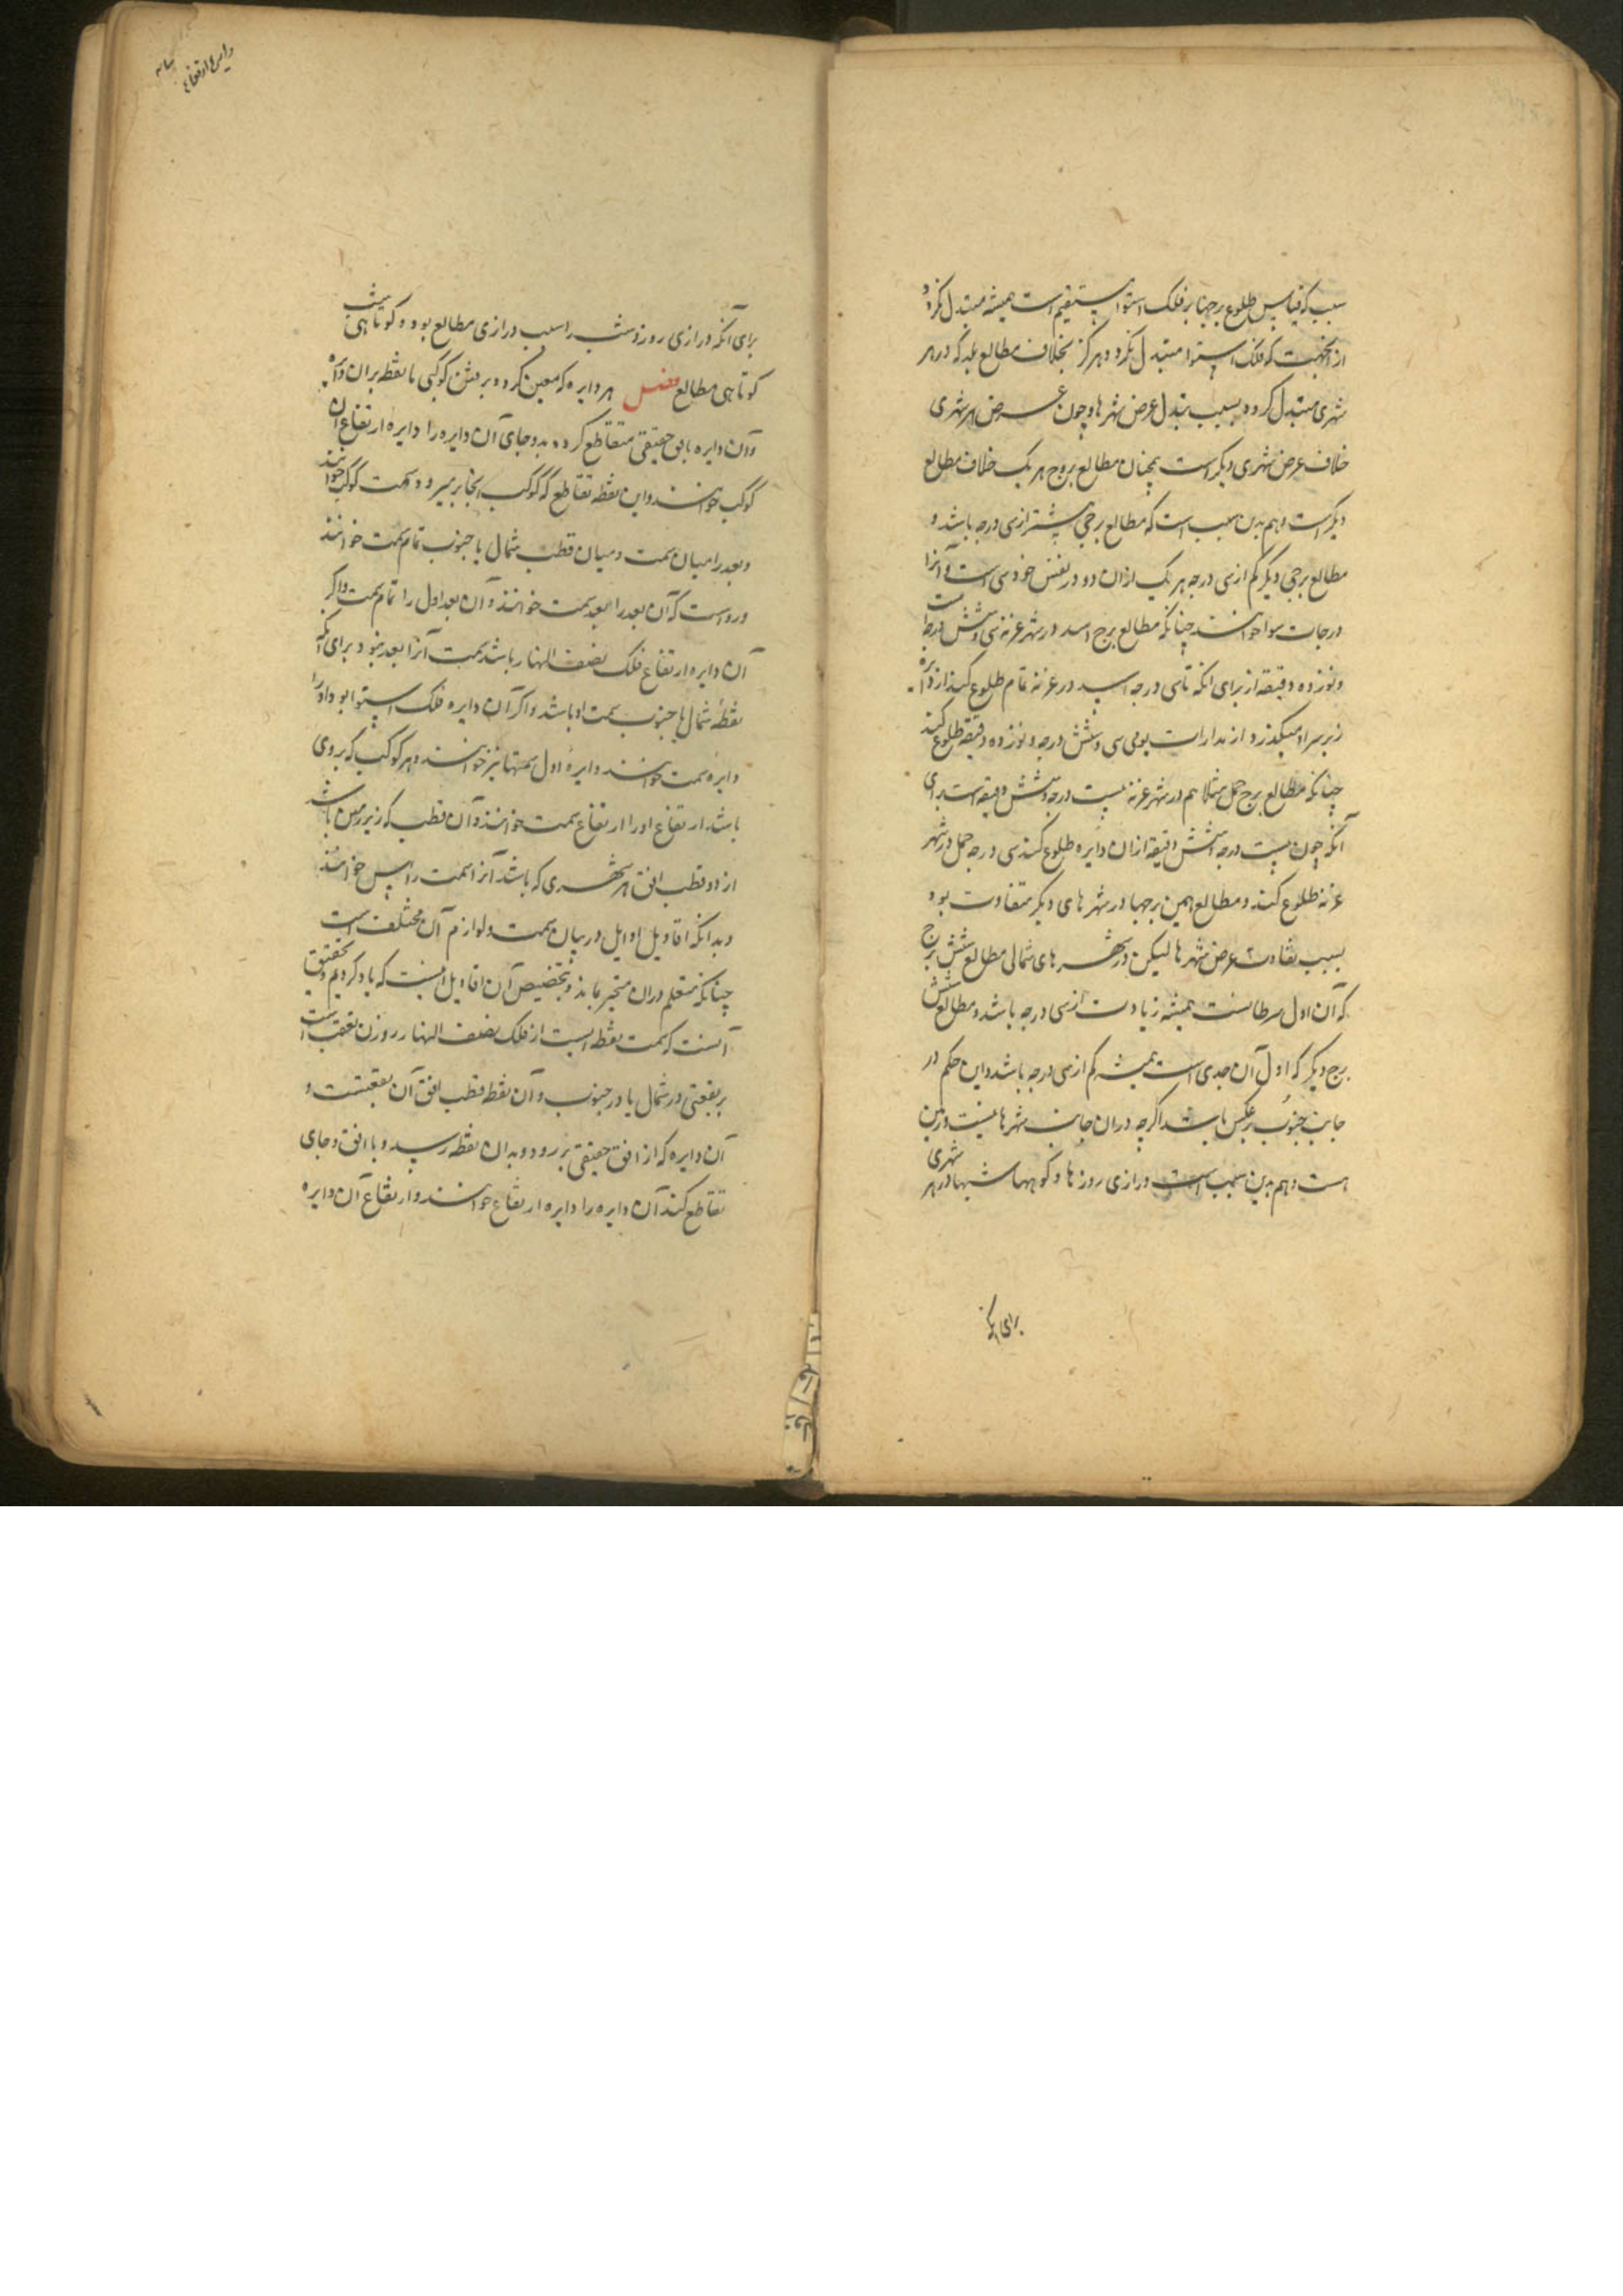 سبب که قیاس طلوع برجها بر فلک استوا مستقیم است همیشه متبدل نکردد
از انجهت که فلک استوا متبدل نکردد هرکز بخلاف مطالع بلد که در هر
شهری متبدل کردد بسبب تبدل عرض شهرها و چون عرض هر شهری
خلاف عرض شهری دیکر است همچنان مطالع بروج هر یک خلاف مطالع
دیکر است و هم بدین سبب است که مطالع برجی بیشتر از سی درجه باشد و
مطالع برجی دیکر کم از سی درجه هر یک ازان دو در نفس خود سی است و آنرا
درجات سوا خوانند چنانکه مطالع برج اسد در شهر غزنه سی و شش درجه است
و نوزده دقیقه از برای انکه تا سی درجه اسد در غزنه تمام طلوع کند از دایره
زیر سر او میکذرد از مدارات یومی سی و شش درجه و نوزده دقیقه طلوع کند
چنانکه مطالع برج حمل مثلا هم در شهر غزنه بیست درجه و شش دقیقه است برای
آنکه چون بیست درجه و شش دقیقه ازان دایره طلوع کند سی درجه حمل در شهر
غزنه طلوع کند و مطالع همین برجها در شهرهای دیکر متفاوت بود
بسبب تفاوت عرض شهرها لیکن در شهرهای شمالی مطالع شش برج
که آن اول سرطانست همیشه زیادت از سی درجه باشد و مطالع شش
برج دیکر که اول آن جدی است همیشه کم از سی درجه باشد و این حکم در
جانب جنوب برعکس باشد اکرچه دران جانب شهرها نیست و زمین
هست و هم بدین سبب است درازی روزها و کوتاهی شبها در هر شهری
برای انکه
دایره ارتفاع
برای آنکه درازی روز و شب را سبب درازی مطالع بود و کوتاهی شب
کوتاهی مطالع فصل هر دایره که معین کردد بر کوکبی یا نقطه بران دایره
وآن دایره باافق حقیقی متقاطع کردد بدو جای آن دایره را دایره ارتفاع آن
کوکب خوانند و این نقطه تقاطع که کوکب انجا برمیرود سمت کوکب خوانند
و بعد را میان سمت و میان قطب شمال یا جنوب تمام سمت خوانند
و رواست که آن بعد را بعد سمت خوانند و آن بعد اول را تمام سمت واکر
آن دایره ارتفاع فلک نصف النهار باشد سمت آنرا بعد نبود برای آنکه
نقطهٔ شمال یا جنوب سمت او باشد واکر آن دایره فلک استوا بود اورا
دایره سمت خوانند دایرهٔ اول سمتها نیز خوانند و هر کوکب که بروی
باشد ارتفاع اورا ارتفاع سمت خوانند و آن قطب که زیر زمین باشد
از دو قطب افق هر شهری که باشد آنرا سمت راس خوانند
و بدانکه اقاویل اوایل در بیان سمت و لوازم آن مختلف است
چنانکه متعلم دران متحیر بماند و تخصیص آن اقاویل اینست که یاد کردیم و تحقیق
آنست که سمت نقطه ایست از فلک نصف النهار
بر بقعتی در شمال یا در جنوب و آن نقطه قطب افق آن بقعتست و
آن دایره که از افق حقیقی بررود و بدان نقطه رسد و با افق دو جای
تقاطع کند آن دایره را دایره ارتفاع خوانند و ارتفاع آن دایره